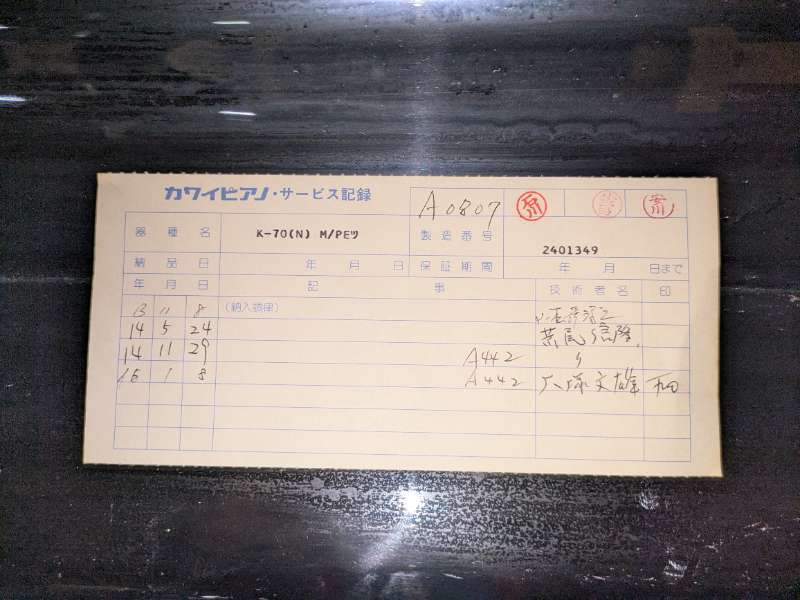 カワイピアノ・サービス記録
A0807
器種名 K-70(N) M/PEツ 製造番号 2401349
納品日 年 月 日 保証期間 年 月 日まで
年 月 日 記事 技術者名 印
13 11 8 (納入調律)
14 5 24 荒尾
14 11 29 A442 〃
15 1 8 A442 大塚文雄